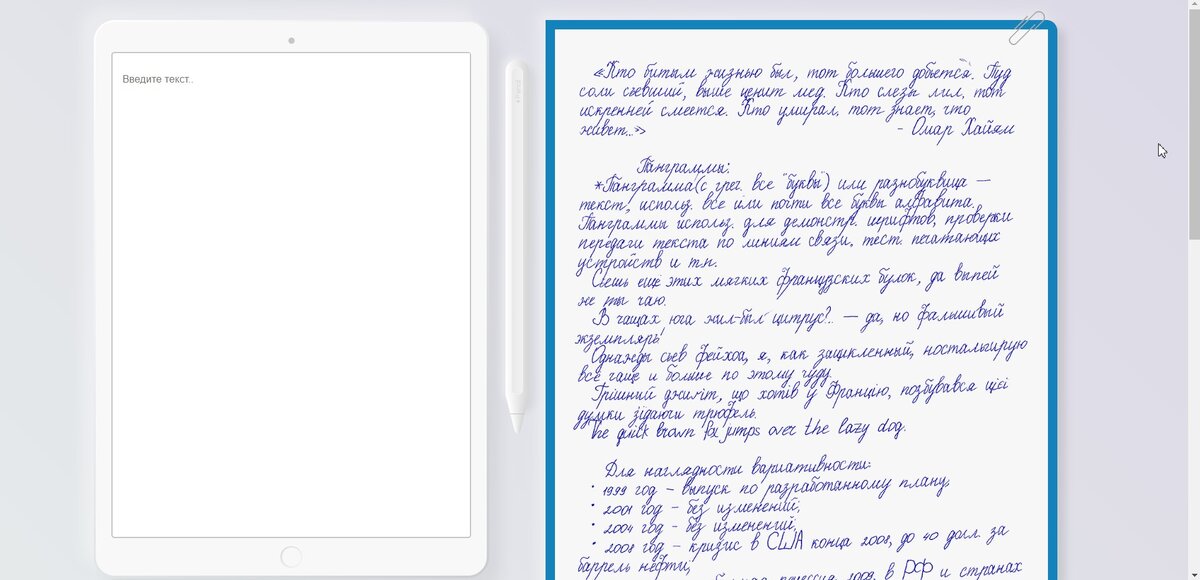 Введите текст..
«Кто битым жизнью был, тот большего добьется. Пуд
соли съевший, выше ценит мед. Кто слезы лил, тот
искренней смеется. Кто умирал, тот знает, что
живет...»
- Омар Хайям
Панграммы:
*Панграмма(с грег. все "буквы") или разнобуквица —
текст, использ. все или почти все буквы алфавита.
Панграммы использ. для демонстр. шрифтов, проверки
передачи текста по линиям связи, тест. печатающих
устройств и т.п.
Съешь ещё этих мягких французских булок, да выпей
же ты чаю.
В чащах юга жил-был цитрус?.. — да, но фальшивый
экземпляръ!
Однажды съев фейхоа, я, как зацикленный, ностальгирую
всё чаще и больше по этому чуду.
Грішний джиґіт, що хотів у Францію, позбувався цієї
думки з'їдаючи трюфель.
The quick brown fox jumps over the lazy dog.
Для наглядности вариативности:
• 1999 год – выпуск по разработанному плану;
• 2001 год – без изменений;
• 2004 год – без изменений;
• 2008 год – кризис в США конца 2008, до 40 долл. за
баррель нефти;
2009, в РФ и странах